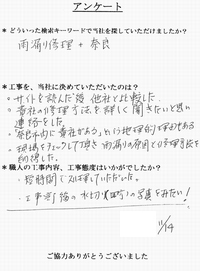 アンケート
* どういった検索キーワードで当社を探していただけましたか?
雨漏り修理 + 奈良
* 工事を、当社に決めていただいたのは?
・サイトを読んだ後 他社と比較した。
・貴社の修理方法を詳しく聞きたいと思い
連絡をした。
・奈良市内に貴社がある、という地理的な理由もある
・現場をチェックして頂き 雨漏りの原因と修理方法を
納得した。
* 職人の工事内容、工事態度はいかがでしたか?
・短時間で処理していただいた。
・工事完了後の水切り の写真をみたい!
11/14
ご協力ありがとうございました